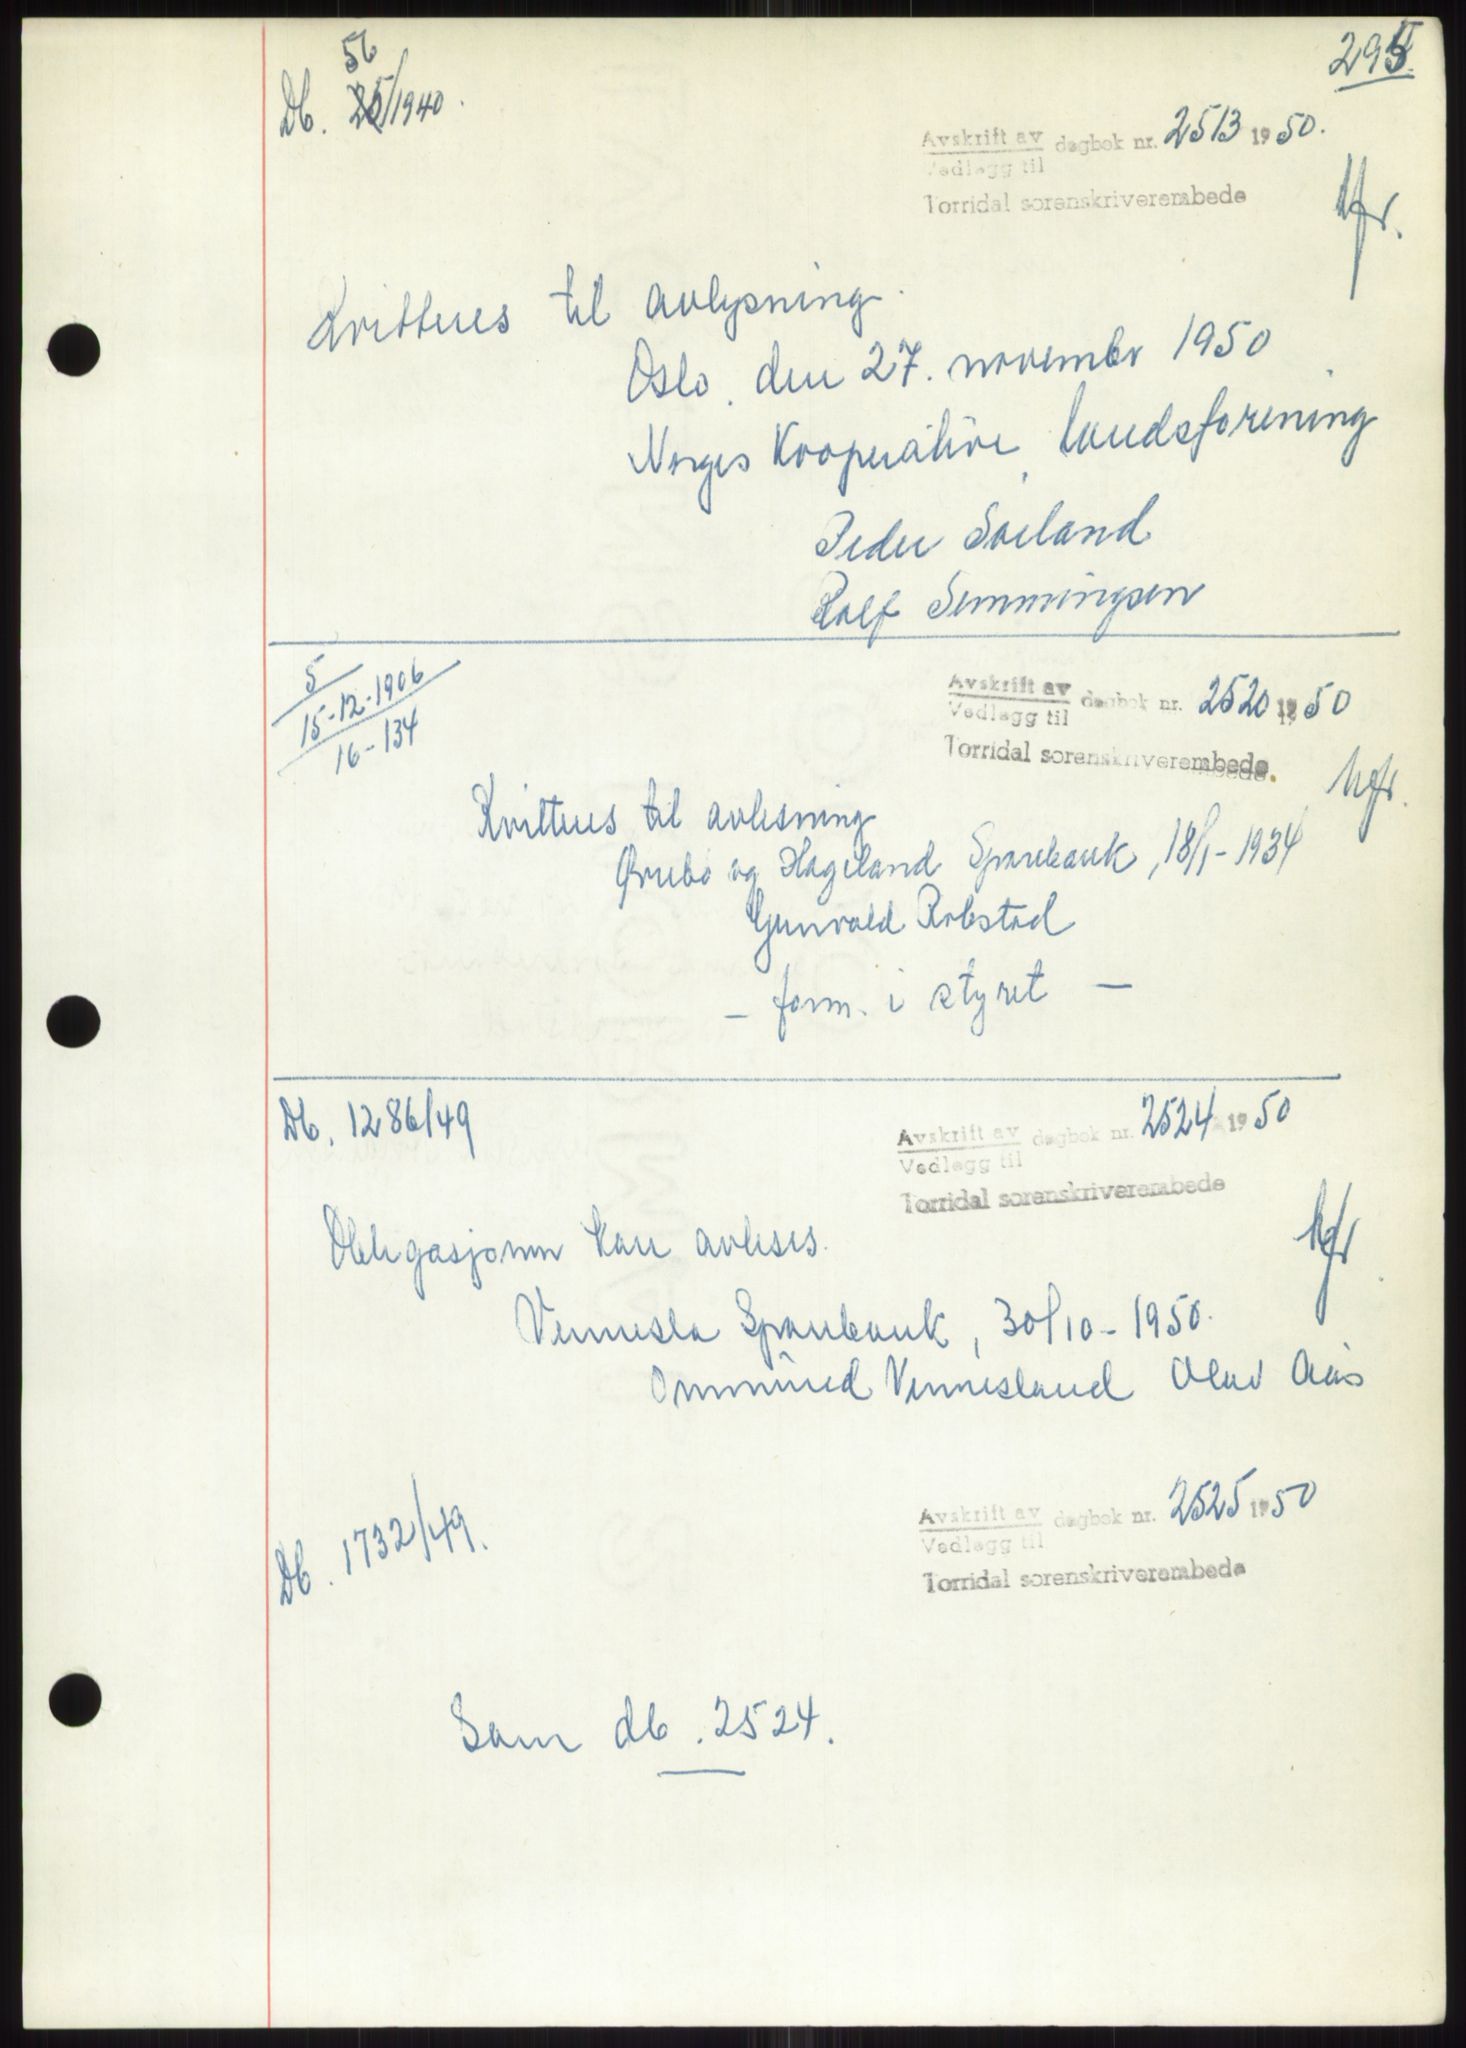 295.
56
Db. 25/1940.
Avskrift av dagbok nr. 2513 1950.
Vedlegg til
Torridal sorenskriverembede
Kvitteres til avlysning.
Oslo, den 27. november 1950
Norges Kooperative landsforening
Peder Søiland
Rolf Semmingsen
5
15-12-1906
16-134
Avskrift av dagbok nr. 2520 1950
Vedlegg til
Torridal sorenskriverembede.
Kvitteres til avlesning
Øvrebø og Hægeland Sparebank, 18/1-1934
Gunvald Robstad
- form. i styret -
Db. 1286/49
Avskrift av dagbok nr. 2524 1950
Vedlegg til
Torridal sorenskriverembede
Obligasjonen kan avleses.
Vennesla Sparebank, 30/10-1950.
Ommund Vennesland Olav Aas
Db. 1732/49.
Avskrift av dagbok nr. 2525 1950
Vedlegg til
Torridal sorenskriverembede
Som db. 2524.